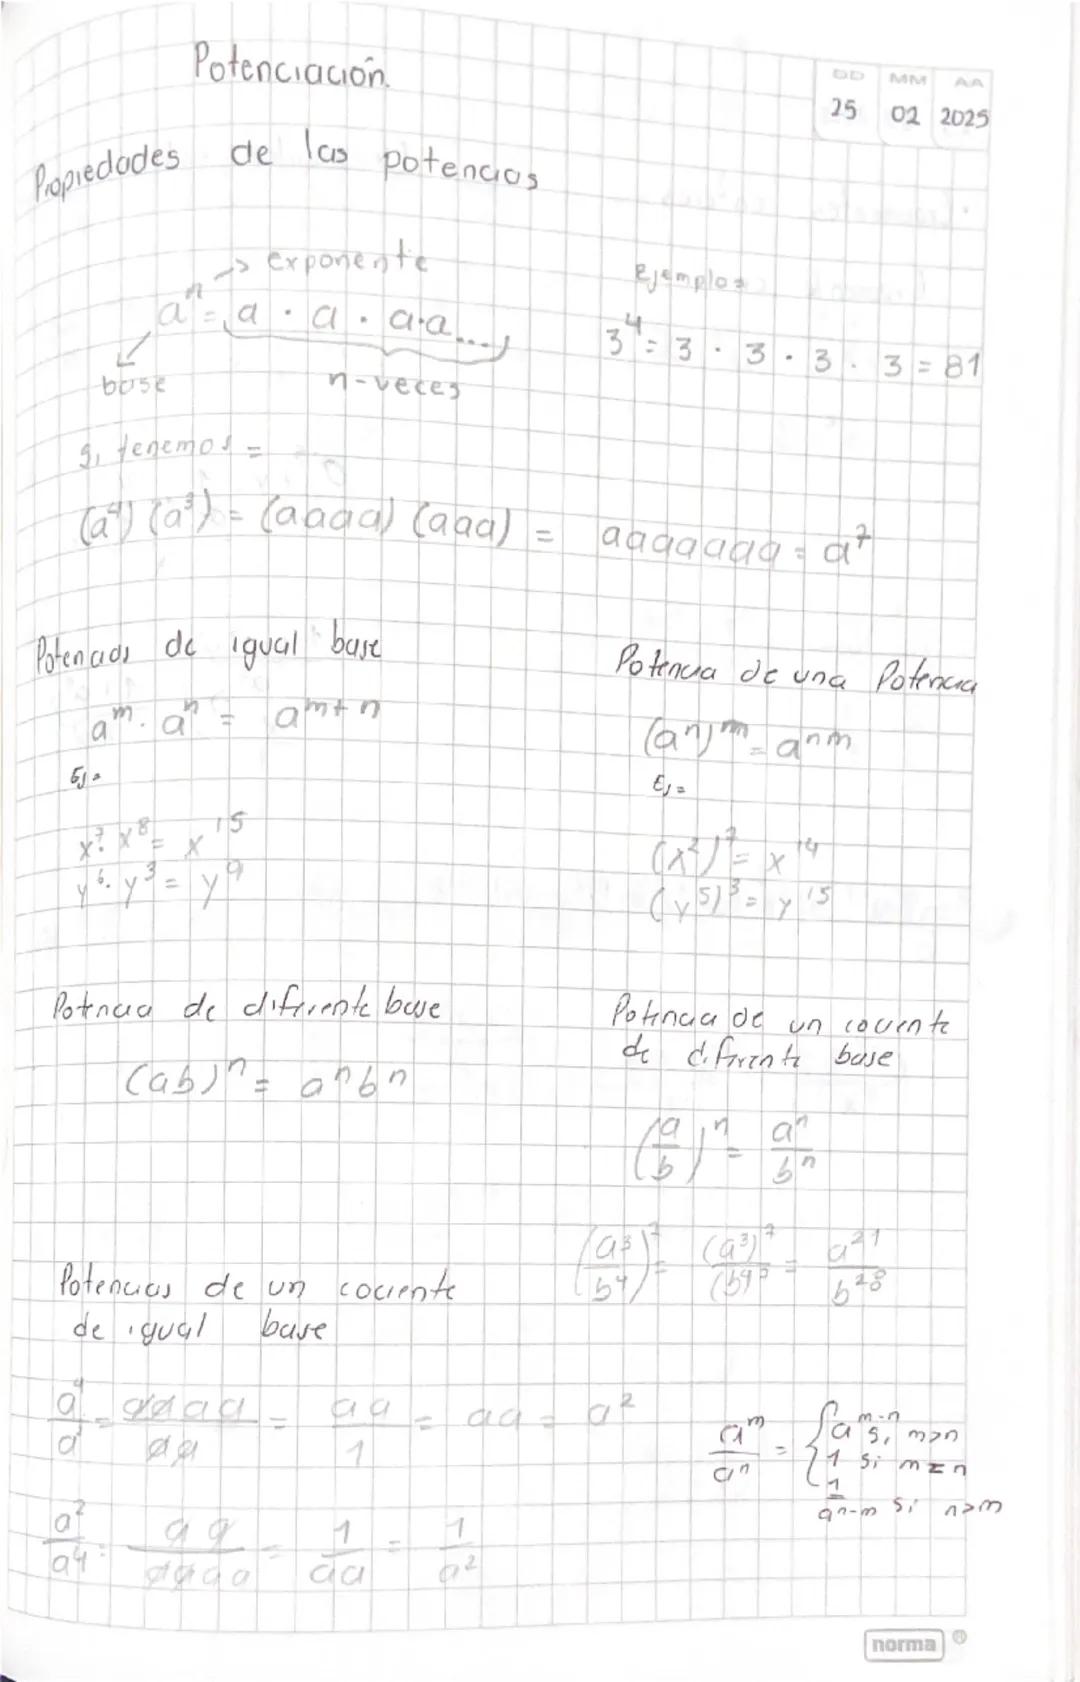 Potenciación.
DD MM AA
25 02 2025
Propiedades de las potencias
→ exponente
aⁿ = a · a · a·a....
base
n-veces
Ejemplo=
3⁴ = 3 · 3 · 3 · 3 = 81
Si tenemos =
(a⁴) (a³) = (aaaa) (aaa) = aaaaaaa = a⁷
Potencias de igual base
aᵐ · aⁿ = aᵐ⁺ⁿ
Ej=
x⁷ · x⁸ = x¹⁵
y⁶ · y³ = y⁹
Potencia de una Potencia
(aⁿ)ᵐ = aⁿᵐ
Ej=
(x²)⁷ = x¹⁴
(y⁵)³ = y¹⁵
Potencia de diferente base
(ab)ⁿ = aⁿbⁿ
Potencia de un cociente
de diferente base
(a/b)ⁿ = aⁿ/bⁿ
(a³/b⁴)⁷ = (a³)⁷/(b⁴ = a²¹/b²⁸
Potencias de un cociente
de igual base
a⁴/a = aaaa/aa = aa/1 = aa = a²
a²/a⁴ = aa/aaaa = 1/aa = 1/a²
aᵐ/aⁿ = { aᵐ⁻ⁿ si m>n
1 si m=n
1/aⁿ⁻ᵐ si n>m
norma ®